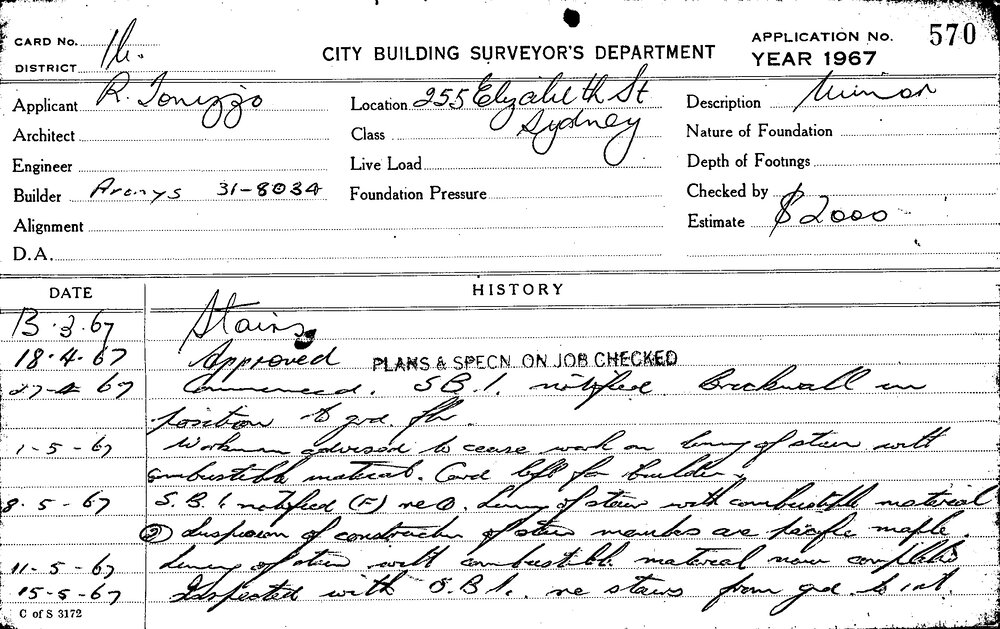 CARD No. 16.
CITY BUILDING SURVEYOR'S DEPARTMENT
APPLICATION No. 570
DISTRICT
YEAR 1967
Applicant R. Tonizzo
Location 255 Elizabeth St
Sydney
Description Minor
Architect
Class
Nature of Foundation
Engineer
Live Load
Depth of Footings
Builder 31-8034
Foundation Pressure
Checked by
Alignment
Estimate $2000
D.A.
DATE
HISTORY
13.3.67 Stairs
18.4.67 Approved PLANS & SPECN ON JOB CHECKED
27-4-67 Commenced. S.B.I. notified Brickwall in
position to grd. flr.
1-5-67 Workman advised to cease work on lining of stair with
combustible material. Card left for builder.
8.5-67 S.B.I. notified (F) re ①. Lining of stair with combustible material
② of construction of stair are pacific maple.
11-5-67 Lining of stair with combustible material now completed
15-5-67 Inspected with S.B.I. re stairs from grd. to 1st.
C of S 3172